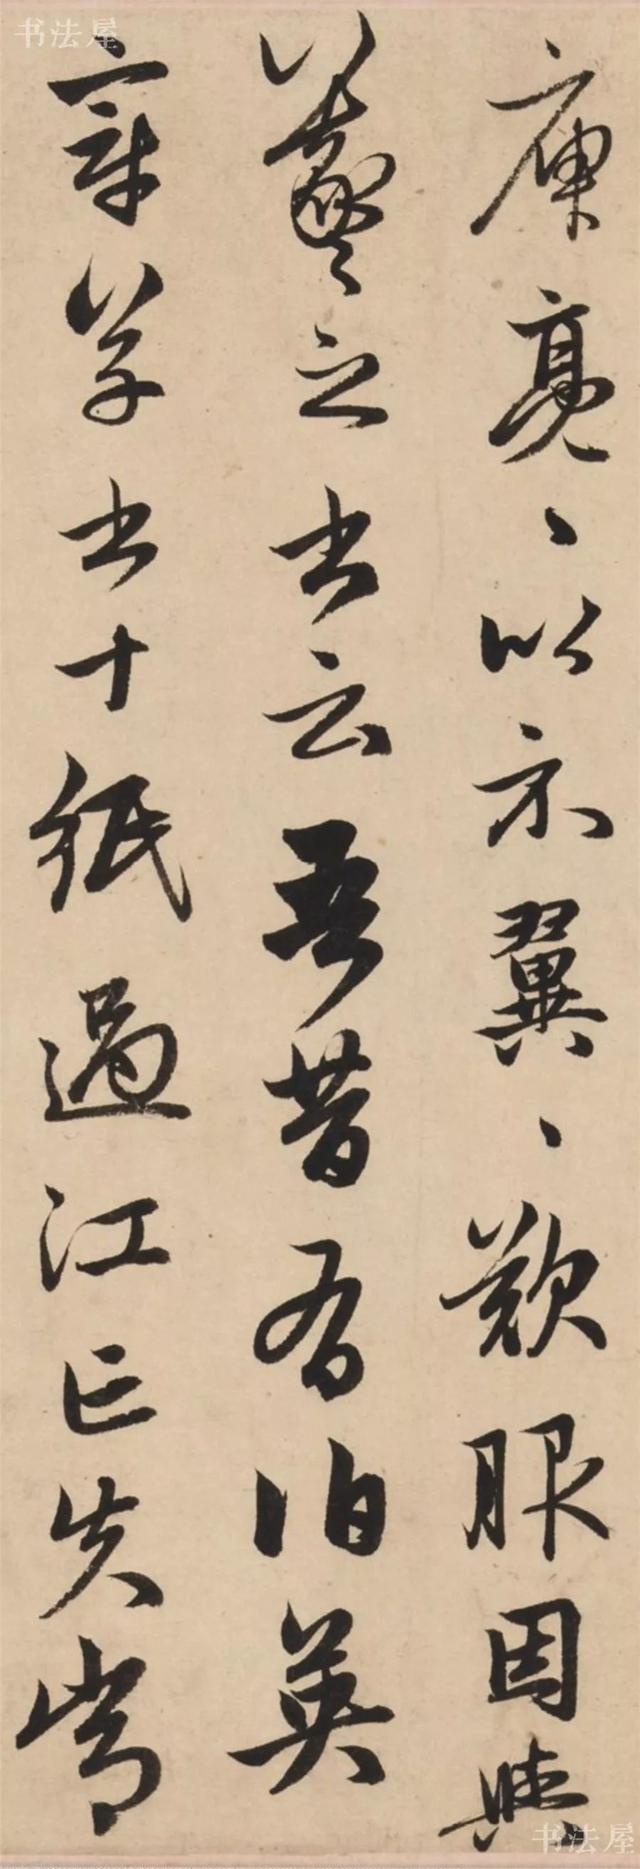 庾亮、以示翼、歎服因與
羲之書云吾昔有伯英
章草書十紙過江亡失常
书法屋
书法屋